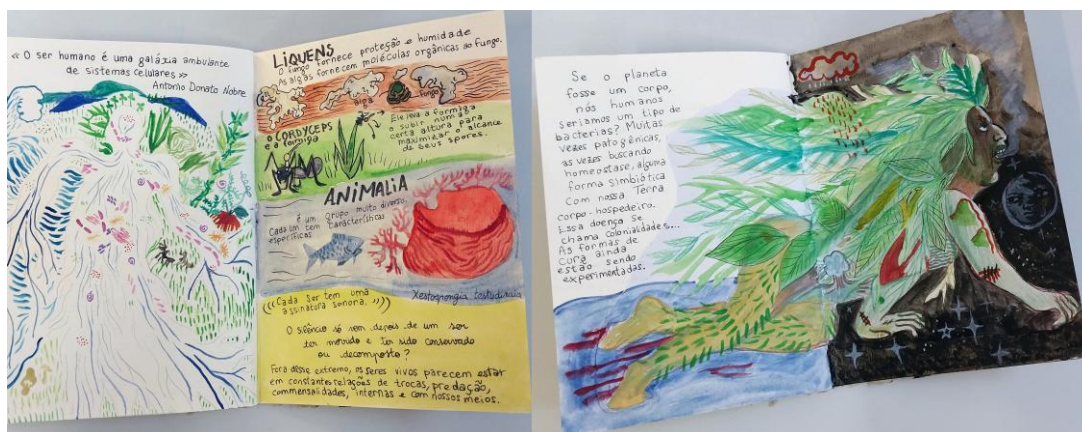 « O ser humano é uma galáxia ambulante
de sistemas celulares »
Antonio Donato Nobre
LÍQUENS
O fungo fornece proteção e humidade
As algas fornecem moléculas orgânicas ao fungo.
alga
fungo
O CORDYCEPS
e a formiga
Ele leva a formiga
a subir numa
certa altura para
maximizar o alcance
de seus spores.
ANIMALIA
é um grupo muito diverso.
Cada um tem características
específicas
Xestospongia testudinaria
((Cada ser tem uma
assinatura sonora.))
O silêncio só vem depois de um ser
ter morrido e ter sido conservado
ou decomposto?
Fora desse extremo, os seres vivos parecem estar
em constantes relações de trocas, predação,
commensalidades, internas e com nossos meios.
Se o planeta
fosse um corpo,
nós humanos
seriamos um tipo de
bacterias? Muitas
vezes patogênicas,
as vezes buscando
homeostase, alguma
forma simbiótica
Com nossa Terra
corpo-hospedeiro.
Essa doença se
chama colonialidades...
As formas de
cura ainda
estão sendo
experimentadas.